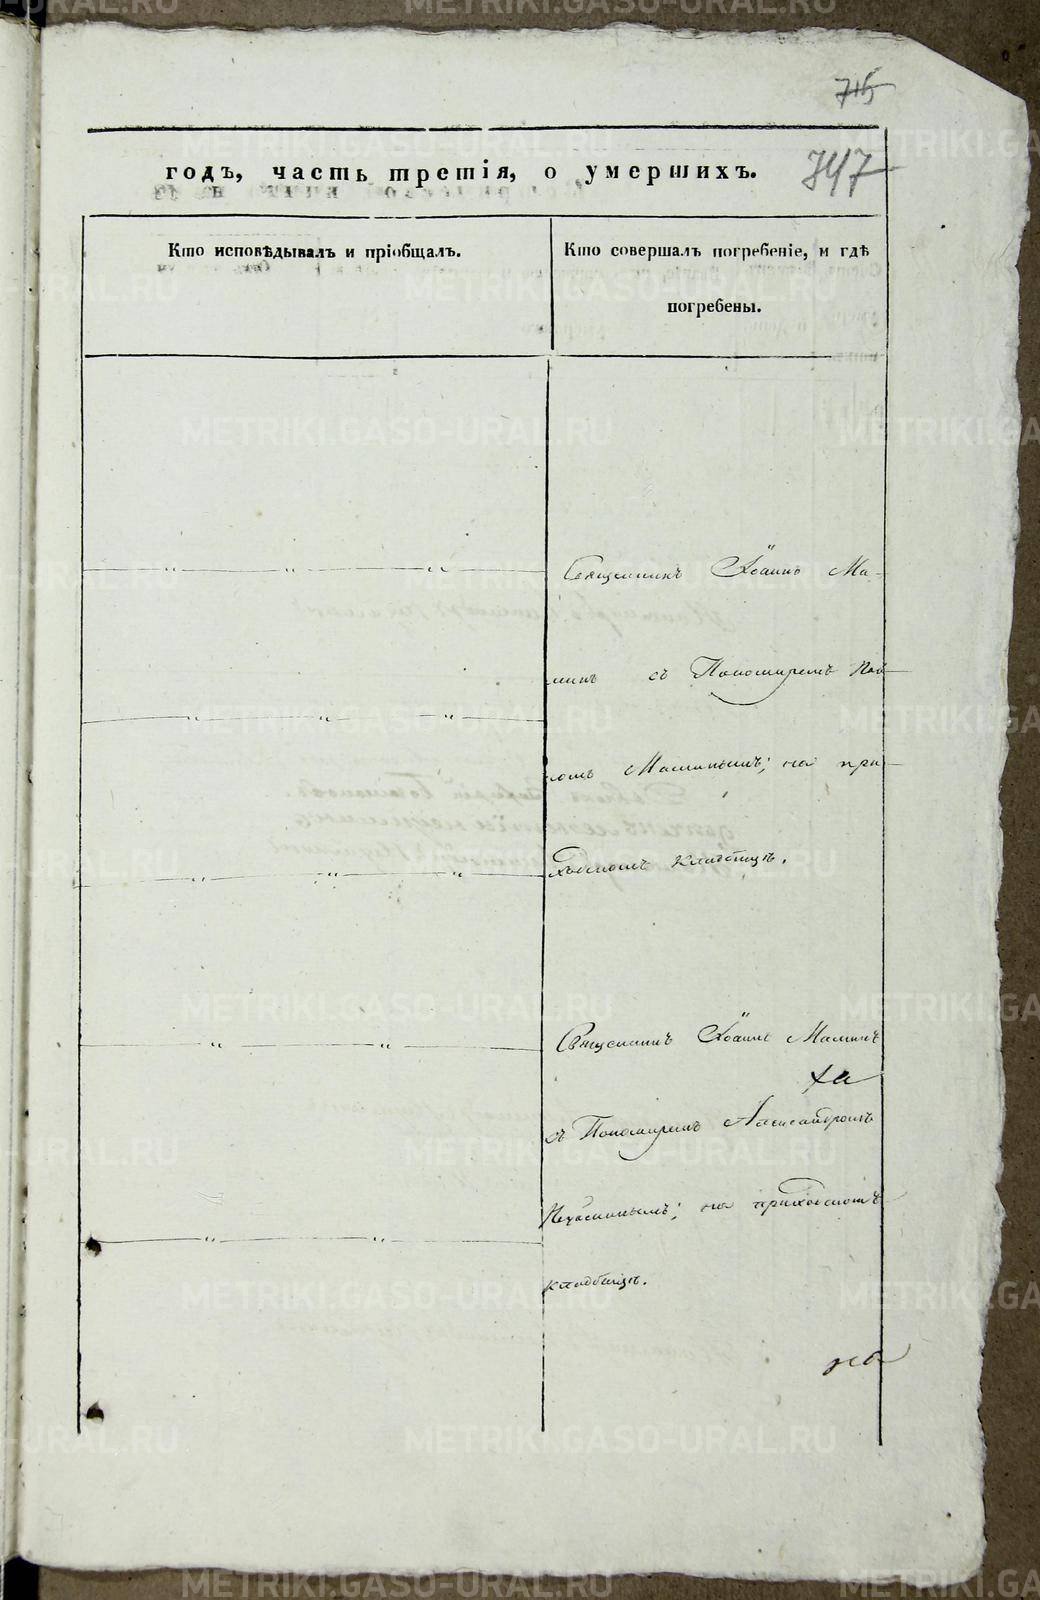 715
747
годъ, часть третія, о умершихъ.
Кто исповѣдывалъ и пріобщалъ.
Кто совершалъ погребеніе, и гдѣ
погребены.
Священникъ Іоаннъ Ма-
минъ съ Пономаремъ
Маминымъ; на при-
ходскомъ кладбищѣ.
Священникъ Іоаннъ Маминъ
съ Пономаремъ Александромъ
на приходскомъ
кладбищѣ.
METRIKI.GASO-URAL.RU